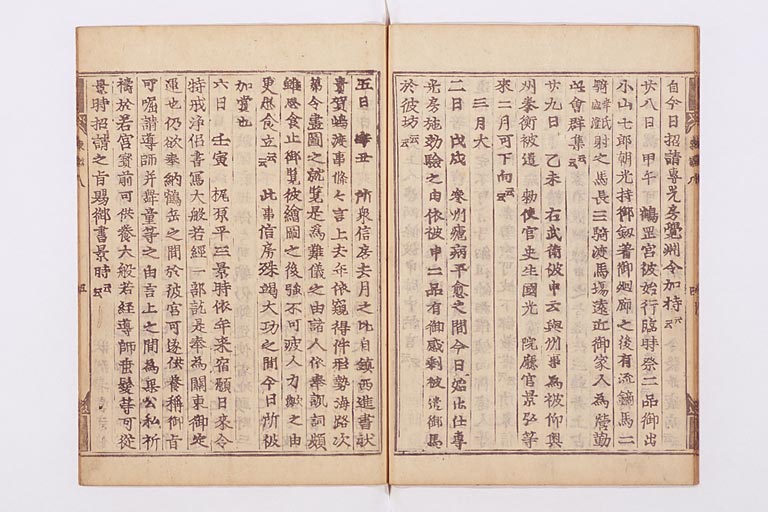 自今日招請專光房覺淵令加持云云
廿八日 甲午 鶴罡宮被始行臨時祭二品御出
小山七郎朝光持御劔著御廻廊之後有流鏑馬二
騎幸氏盛澄射之馬長三騎渡馬場遠近御家人為詹勤
此會群集云云
廿九日 乙未 右武衛被申云與州事為被仰奥
州秀衡被遣 勅使官史生國光 院廳官景弘等
來二月可下向云云
三月大
二日 戊戌 癘病平愈之間今日始出仕專
光房施効驗之由依被申二品有御感剰被遣御馬
於彼坊云云
五日 辛丑 所衆信房去月之比自鎮西進書状
貴賀嶋渡事條々言上去年依窺得件形勢海路次
第令畫圖之就覧是為難儀之由諸人依奉諷詞頗
雖思食止御覧彼繪圖之後強不可疲人力歟之由
更思食立云云 此事信房殊竭大功之間今日所被
加賞也
六日 壬寅 梶原平三景時依年来宿願日来令
持戒浄侶書寫大般若經一部訖是奉為關東御定
運也仍欲奉納鶴岳之間於彼宮可遂供養稱御旨
可囑請導師并舞童等之由言上之間為果公私祈
禱於若宮寶前可供養大般若經導師垂髪等可從
景時招請之旨賜御書景時云云
五